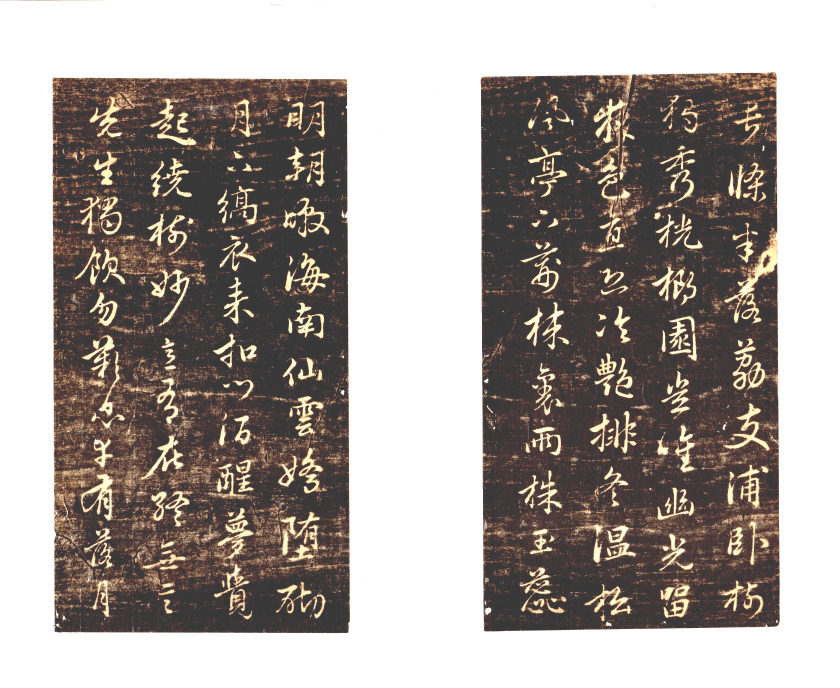 長條半落荔支浦卧樹
獨秀桄榔園豈惟幽光留
夜色直恐冷艷排冬温松
風亭下荆棘裏兩株玉蕊
明朝暾海南仙雲嬌堕砌
月下縞衣來扣門酒醒夢覺
起繞樹妙意有在終無言
先生獨飲勿歎息幸有落月